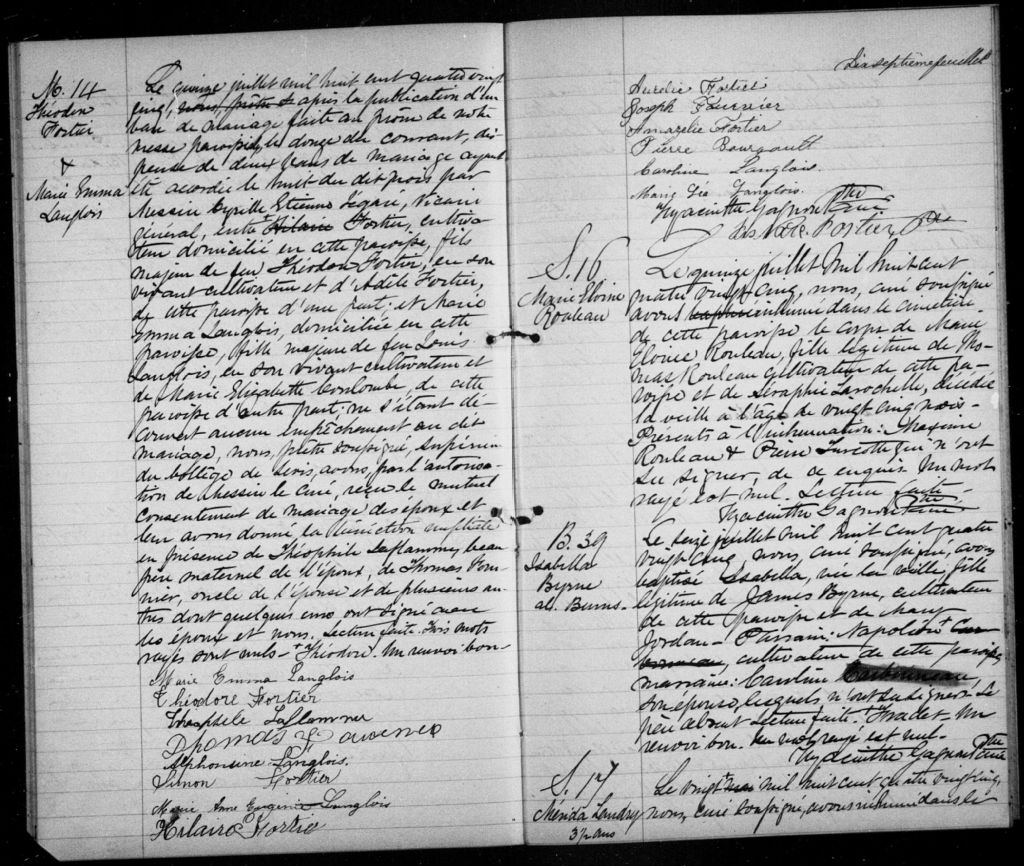 M. 14
Théodore
Fortier
&
Marie Emma
Langlois
Le quinze juillet mil huit cent quatre vingt
cinq, nous, prêtre s après la publication d'un
ban de mariage faite au prône de notre
messe paroissiale le douze du courant, dis
pense de deux bans de mariage ayant
été accordée le huit du dit mois par
Messire Cyrille Etienne Légaré, Vicaire
général, entre + Hilaire Fortier, cultiva
teur domicilié en cette paroisse, fils
majeur de feu Théodore Fortier, en son
vivant cultivateur et d'Adèle Fortier,
de cette paroisse d'une part; et Marie
Emma Langlois, domiciliée en cette
paroisse, fille majeure de feu Louis
Langlois, en son vivant cultivateur et
de Marie Elizabeth Coulombe, de cette
paroisse d'autre part; ne s'étant dé-
couvert aucun empêchement au dit
mariage, nous, prêtre soussigné, supérieur
du Collège de Lévis, avons, par l'autorisa-
tion de Messire le Curé, reçu le mutuel
consentement de mariage des époux et
leur avons donné la bénédiction nuptiale
en présence de Théophile Laflamme, beau
père maternel de l'époux, de Thomas Four-
nier, oncle de l'épouse et de plusieurs au-
tres dont quelques uns ont signé avec
les époux et nous. Lecture faite. Trois mots
rayés sont nuls - + Théodore. Un renvoi bon -
Marie Emma Langlois
Théodore Fortier
Théophile Laflamme
Thomas Fournier
Alphonsine Langlois.
Simon Fortier
Marie Anne Eugenie Langlois
Hilaire Fortier
Dix septième feuillet
Aurelie Fortier
Joseph Fournier
Amazelie Fortier
Pierre Bourgault
Caroline Langlois.
Marie Langlois.
Hyacinthe Gagnon Ptre
Curé
Fortier Ptre
S. 16
Marie Eloïse
Rouleau
Le quinze juillet mil huit cent
quatre vingt cinq, nous, curé soussigné
avons baptisé inhumé dans le cimetière
de cette paroisse le corps de Marie
Eloïse Rouleau, fille légitime de Tho-
mas Rouleau cultivateur de cette pa-
roisse et de Séraphie Larochelle, décédée
la veille à l'âge de vingt cinq mois -
Présents à l'inhumation: Maxime
Rouleau & Pierre Turcotte qui n'ont
su signer, de ce enquis. Un mot
rayé est nul. Lecture faite
Hyacinthe Gagnon Ptre
Curé
B. 39
Isabella
Byrne
al. Burns -
Le seize juillet mil huit cent quatre
vingt cinq, nous, curé soussigné, avons
baptisé Isabella, née la veille, fille
légitime de James Byrne, cultivateur
de cette paroisse et de Mary
Jordan - Parrain: Napoléon +
cultivateur de cette paroisse,
marraine: Caroline
son épouse, lesquels n'ont su signer. Le
père absent. Lecture faite. + Nadet. Un
renvoi bon. Un mot rayé est nul -
Hyacinthe Gagnon Ptre
Curé
S. 17
Mérida Landry
3½ ans
Le vingt mil huit cent quatre vingt cinq
nous, curé soussigné, avons inhumé dans le